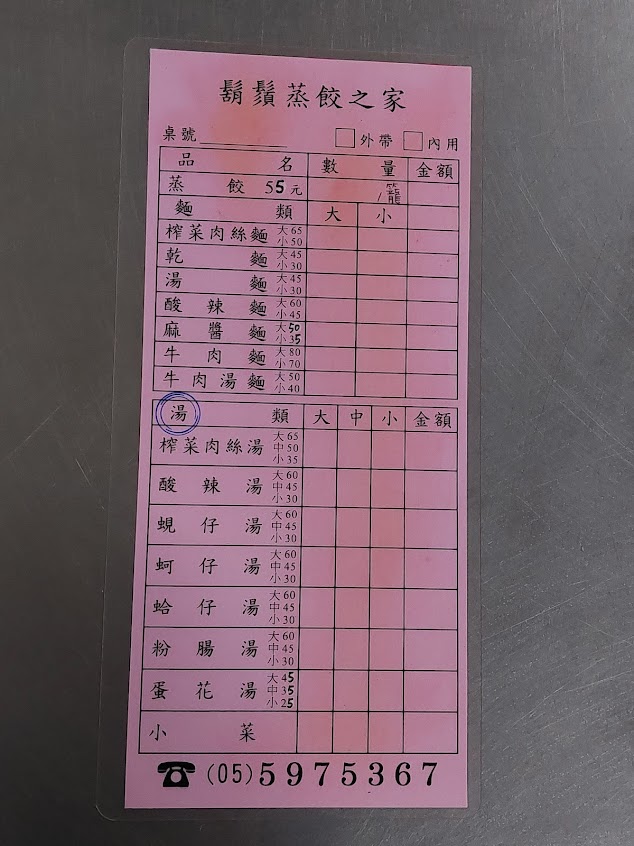 鬍鬚蒸餃之家
桌號 □外帶 □內用
品名 數量 金額
蒸餃 55元 /籠
麵類 大 小
榨菜肉絲麵 大65 小50
乾麵 大45 小30
湯麵 大45 小30
酸辣麵 大60 小45
麻醬麵 大50 小35
牛肉麵 大80 小70
牛肉湯麵 大50 小40
湯類 大 中 小 金額
榨菜肉絲湯 大65 中50 小35
酸辣湯 大60 中45 小30
蜆仔湯 大60 中45 小30
蚵仔湯 大60 中45 小30
蛤仔湯 大60 中45 小30
粉腸湯 大60 中45 小30
蛋花湯 大45 中35 小25
小菜
☎(05)5975367